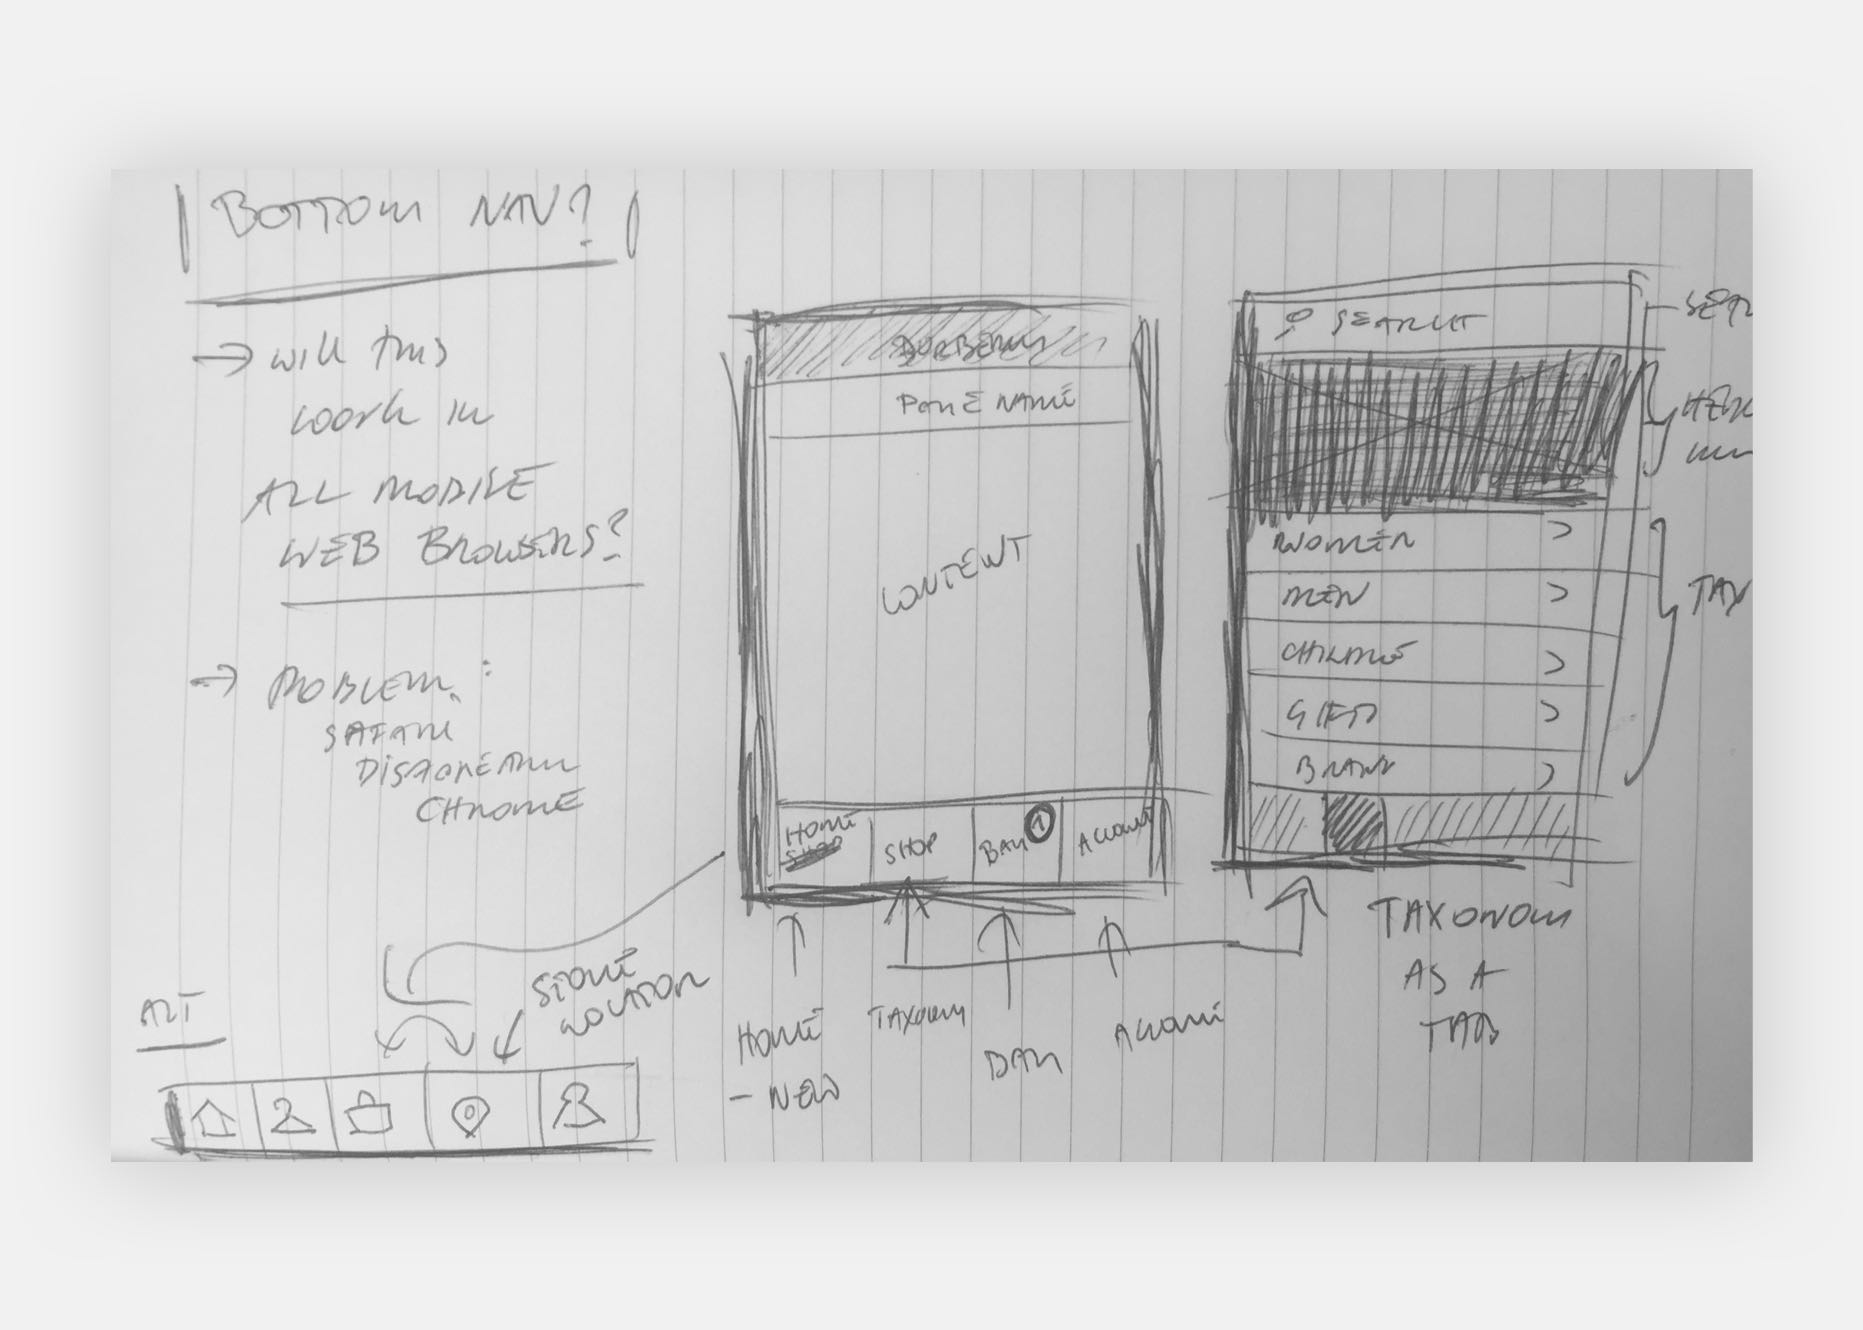 BOTTOM NAV?
→ Will this
work in
ALL MOBILE
WEB BROWSERS?
→ PROBLEM:
SAFARI
CHROME
ALT
STORE
LOCATION
BURBERRY
PAGE NAME
CONTENT
HOME
SHOP
SHOP
BAG 1
ACCOUNT
HOME
- NEW
TAXONOMY
BAG
ACCOUNT
SEARCH
WOMEN >
MEN >
CHILDREN >
GIFTS >
>
TAX
TAXONOMY
AS A
TAB